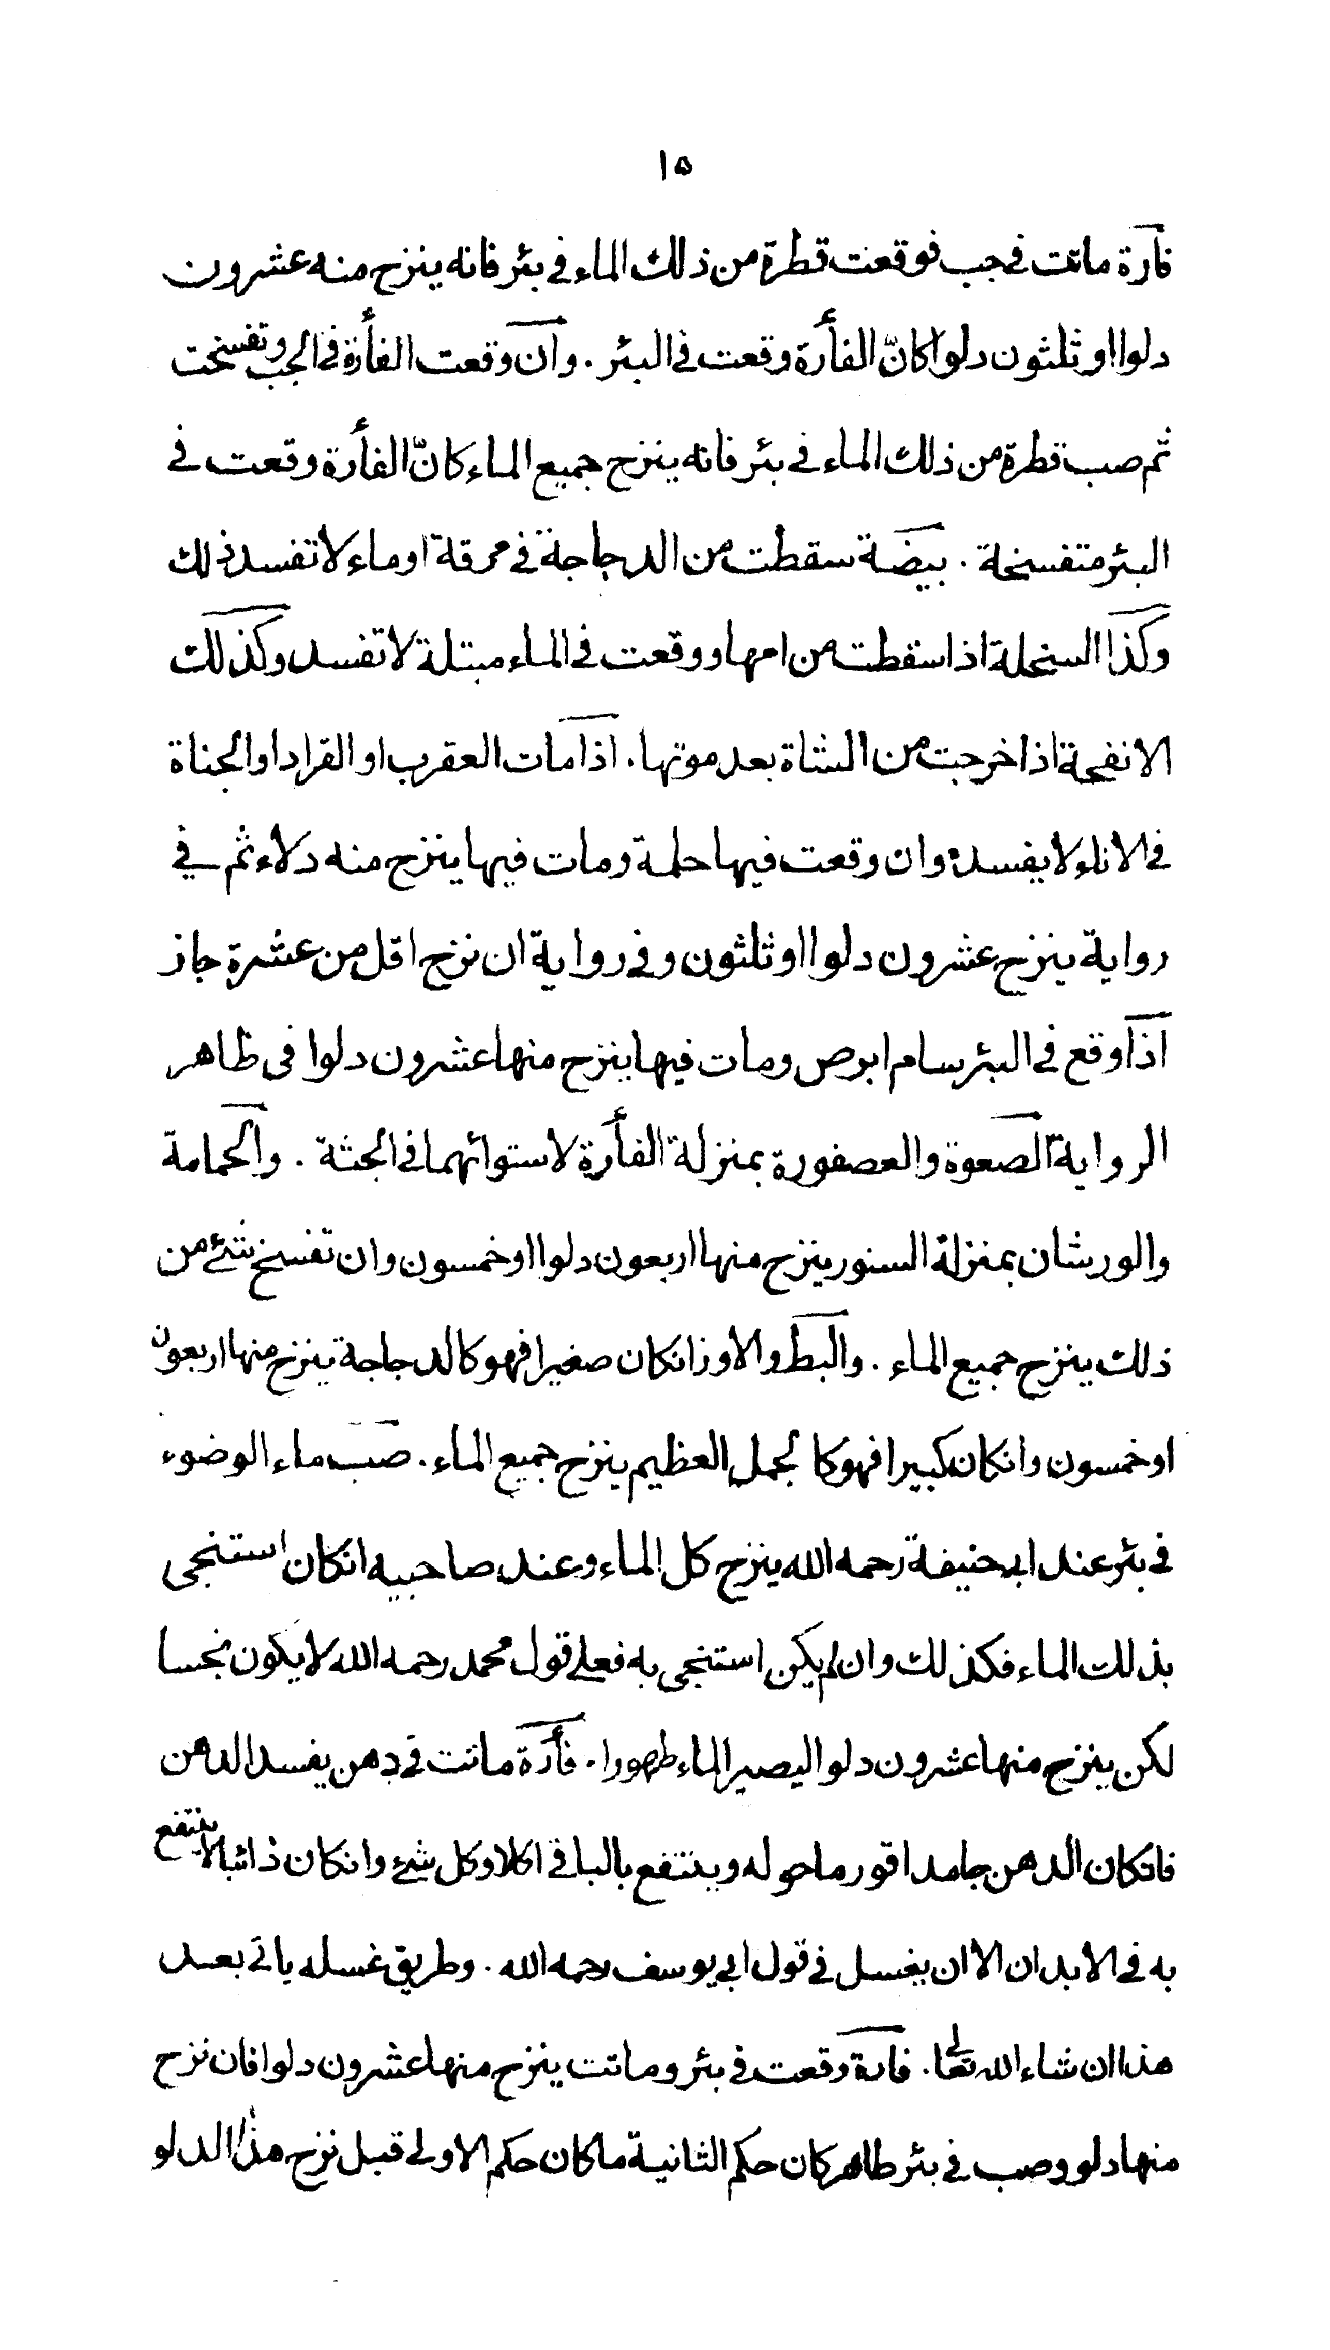 ١٥
فارة ماتت في جب فوقعت قطرة من ذلك الماء في بئر فانه ينزح منه عشرون
دلوا او ثلثون دلوا كانّ الفأرة وقعت في البئر . وان وقعت الفأرة في الجب وتفسخت
ثم صب قطرة من ذلك الماء في بئر فانه ينزح جميع الماء كانّ الفأرة وقعت في
البئر متفسخة . بيضة سقطت من الدجاجة في مرقة او ماء لا تفسد ذلك
وكذا السخلة اذا سقطت من امها ووقعت في الماء مبتلة لا تفسد وكذلك
الانفحة اذا خرجت من الشاة بعد موتها . اذا مات العقرب او القراد او الجناة
في الاناء لا يفسده وان وقعت فيها حلمة ومات فيها ينزح منه دلاء ثم في
رواية ينزح عشرون دلوا او ثلثون وفي رواية ان نزح اقل من عشرة جاز
اذا وقع في البئر سام ابرص ومات فيها ينزح منها عشرون دلوا في ظاهر
الرواية الصعوة والعصفورة بمنزلة الفأرة لاستوائهما في الجثة . والحمامة
والورشان بمنزلة السنور ينزح منها اربعون دلوا او خمسون وان تفسخ شئ من
ذلك ينزح جميع الماء . والبط والاوز انكان صغيرا فهو كالدجاجة ينزح منها اربعون
او خمسون وانكان كبيرا فهو كالجمل العظيم ينزح جميع الماء . صب ماء الوضوء
في بئر عند ابي حنيفة رحمه الله ينزح كل الماء وعند صاحبيه انكان استنجى
بذلك الماء فكذلك وان لم يكن استنجى به فعلى قول محمد رحمه الله لا يكون نجسا
لكن ينزح منها عشرون دلوا ليصير الماء طهورا . فأرة ماتت في دهن يفسد الدهن
فانكان الدهن جامدا قور ما حوله وينتفع بالباقي اكلا وكل شئ وانكان ذائبا لا ينتفع
به في الابدان الا ان يغسل في قول ابي يوسف رحمه الله . وطريق غسله ياتى بعد
هذا ان شاء الله تعالى . فارة وقعت في بئر وماتت ينزح منها عشرون دلوا فان نزح
منها دلو وصب في بئر طاهر كان حكم الثانية ما كان حكم الاولى قبل نزح هذا الدلو